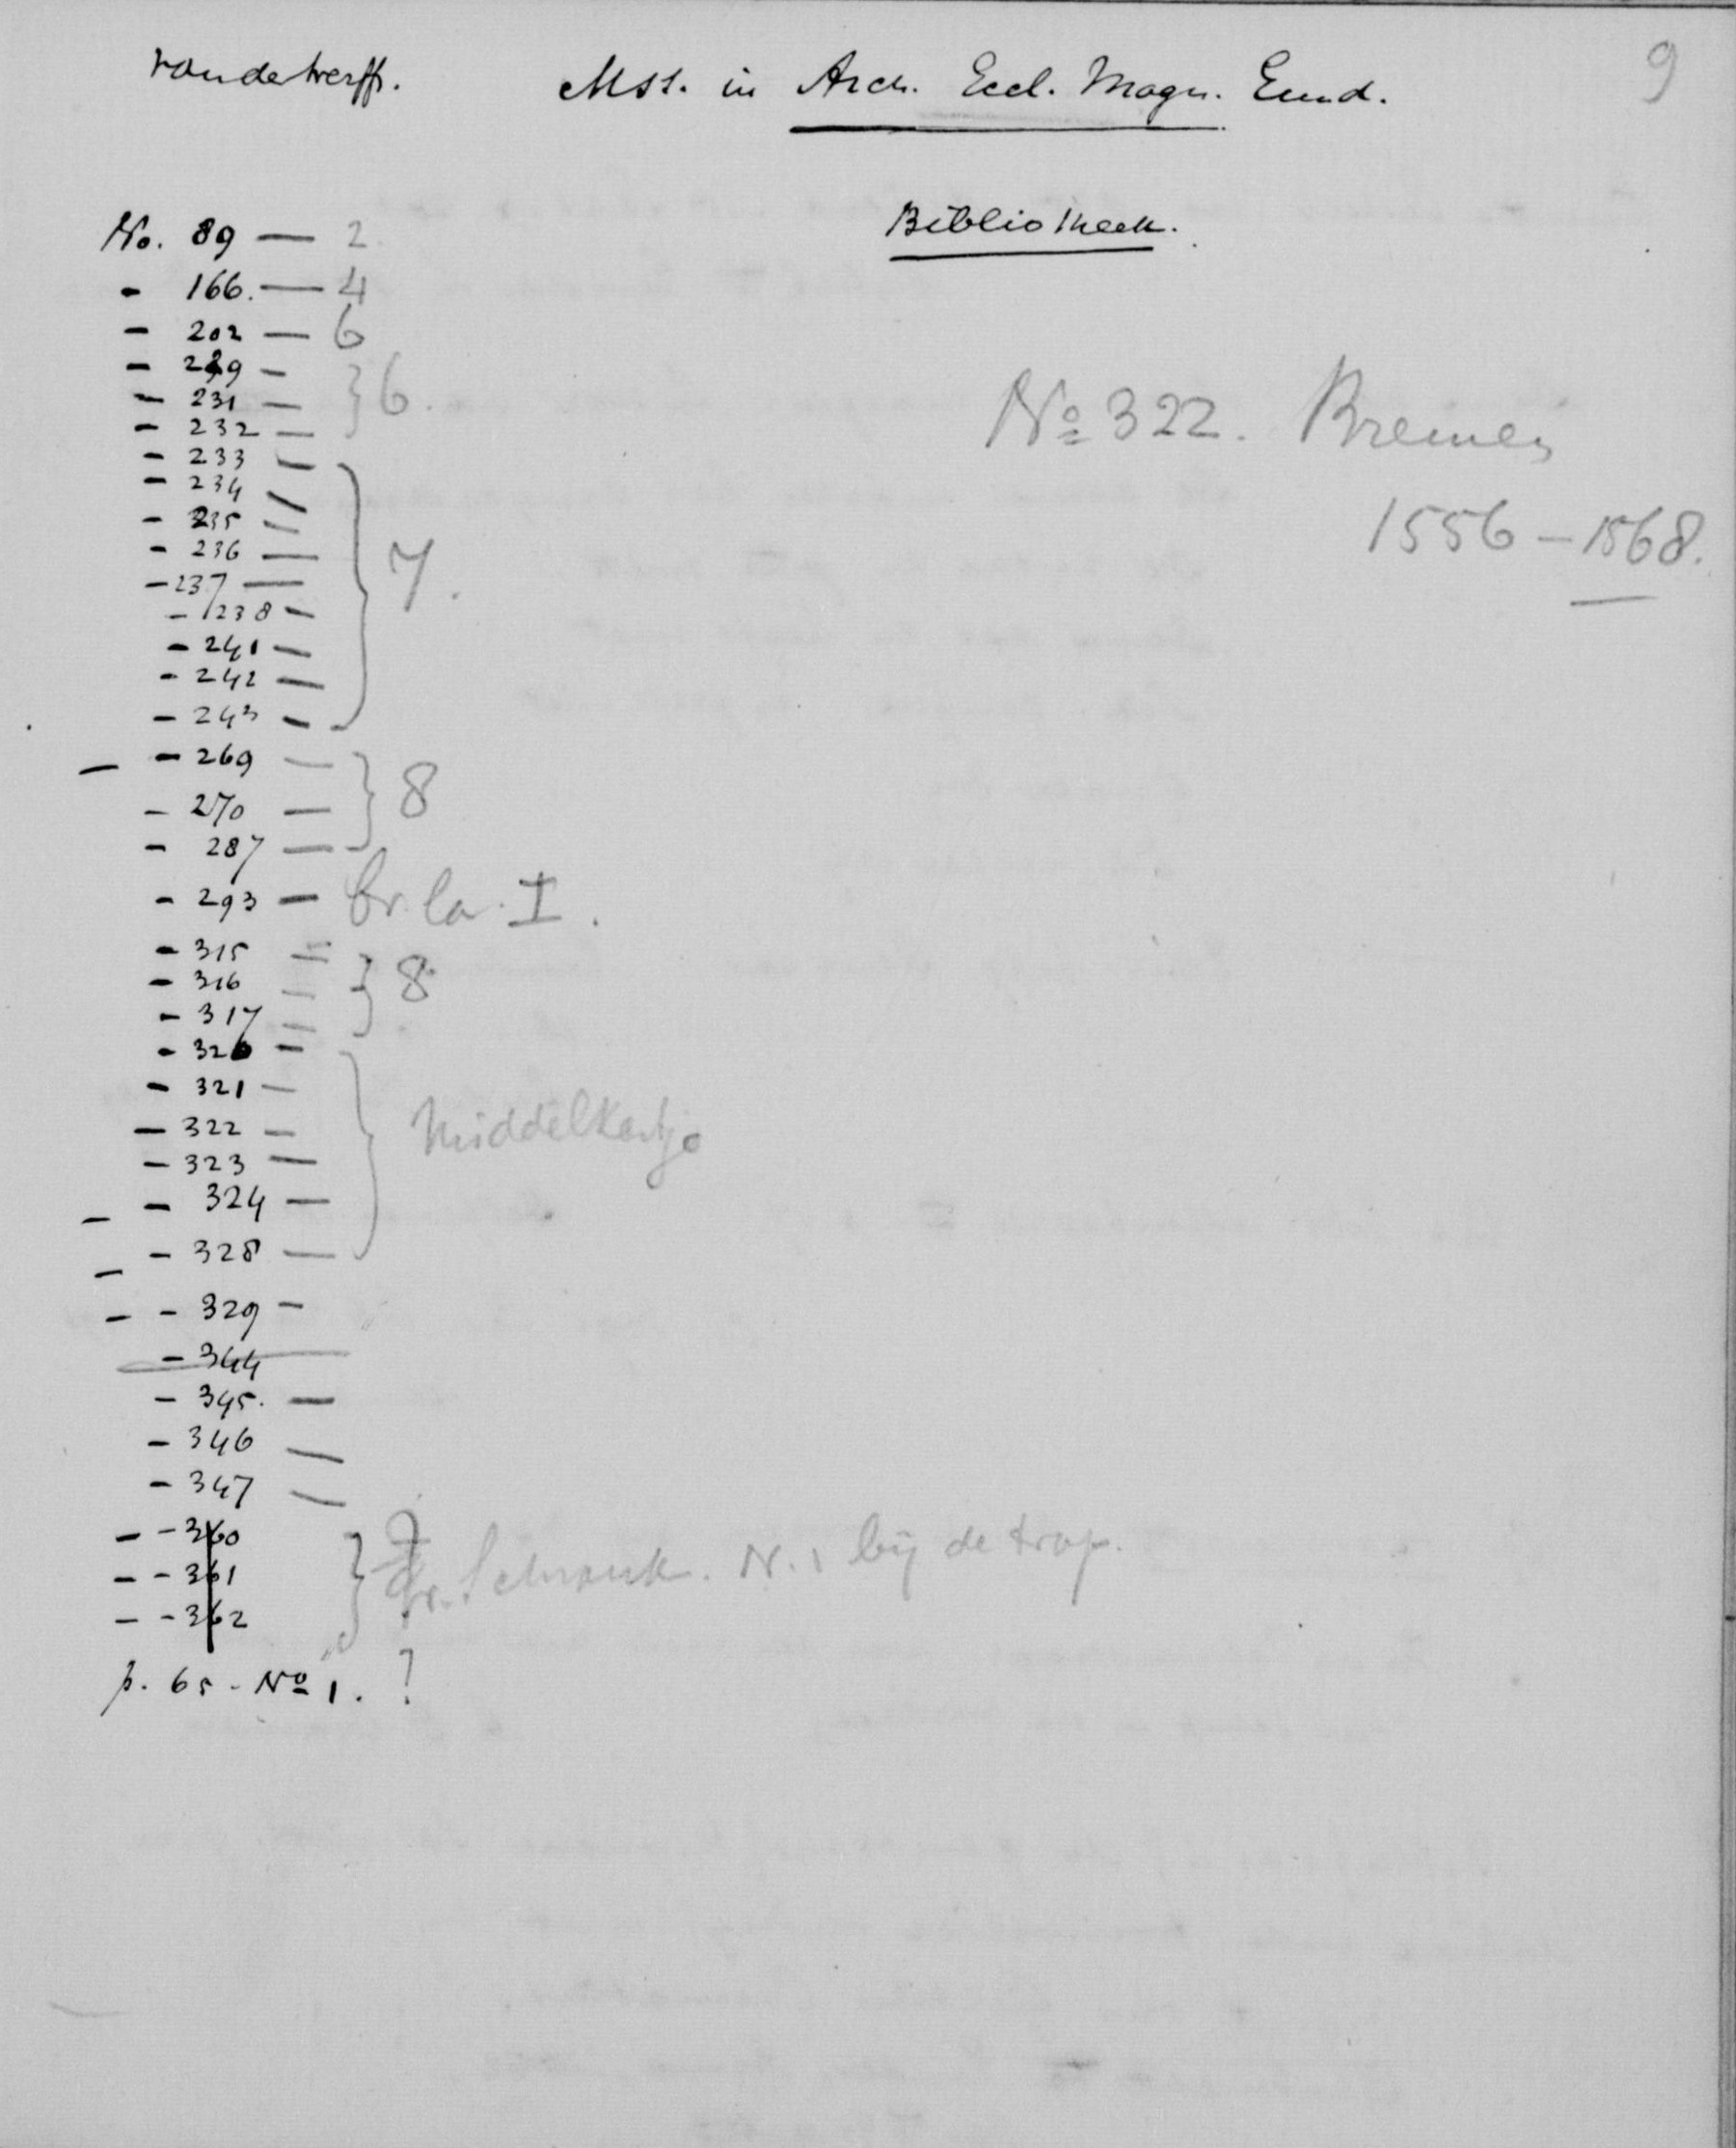 Mss. in Arch. Eccl. Magn. Emd.
9
Bibliotheek.
No. 89 — 2.
- 166. — 4
- 202 — 6
- 229 -
- 231 — } 6.
- 232 —
- 233 —
- 234 —
- 235 —
- 236 —
- 237 — } 7.
- 238 —
- 241 —
- 242 —
- 243 —
— - 269 —
- 270 — } 8
- 287 —
- 293 — I.
- 315 =
- 316 — } 8
- 317 —
- 320 —
- 321 —
- 322 —
- 323 —
— - 324 —
— - 328 —
— - 329 -
- 344
- 345. —
- 346 —
- 347 —
— - 360
— - 361 } Schrank. N. 1 bij de trap.
— - 362
p. 65 - No 1. ?
No 322. Bremen
1556 - 1568.